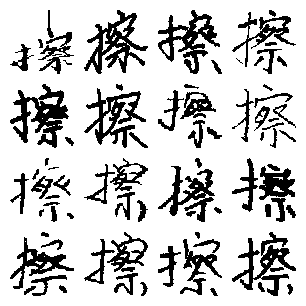 擦擦擦擦
擦擦擦擦
擦擦擦擦
擦擦擦擦